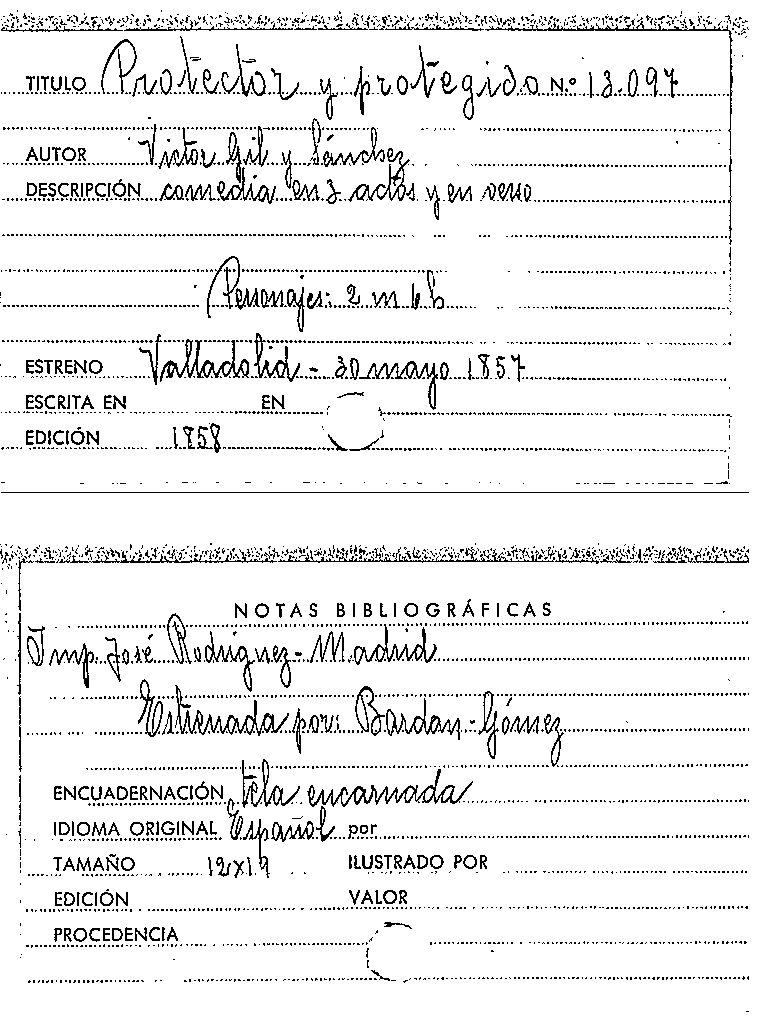 TITULO Protector y protegido N.º 13.097
AUTOR Victor Gil y Sánchez
DESCRIPCIÓN comedia en 3 actos y en verso
Personajes: 2 m 6 h
ESTRENO Valladolid - 30 mayo 1857
ESCRITA EN EN
EDICIÓN 1858
NOTAS BIBLIOGRÁFICAS
Imp. José Rodriguez - Madrid
Estrenada por: Bardan - Gómez
ENCUADERNACIÓN tela encarnada
IDIOMA ORIGINAL Español por
TAMAÑO 12x19 ILUSTRADO POR
EDICIÓN VALOR
PROCEDENCIA